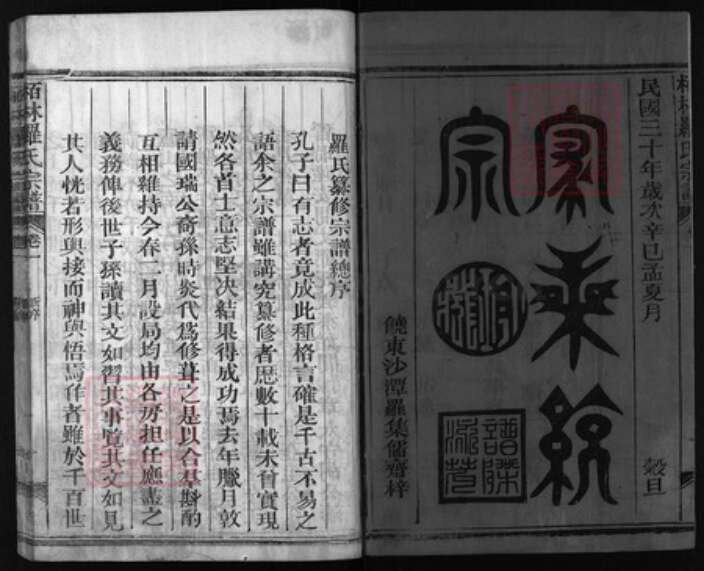 民國三十年歲次辛巳孟夏月
穀旦
家乘統
宗
饒東沙潭羅集儒齋梓
羅氏纂修宗譜總序
孔子曰有志者竟成此種格言確是千古不易之
語余之宗譜雖講究纂修者歷數十載未曾實現
然各首士意志堅决結果得成功焉去年臘月敦
請國瑞公裔孫時炎代爲修葺之是以合羣斟酌
互相維持今春二月設局均由各房担任應盡之
義務俾後世子孫讀其文如習其事覽其文如見
其人恍若形與接而神與悟焉作者雖於千百世
栢林羅氏宗譜
卷一